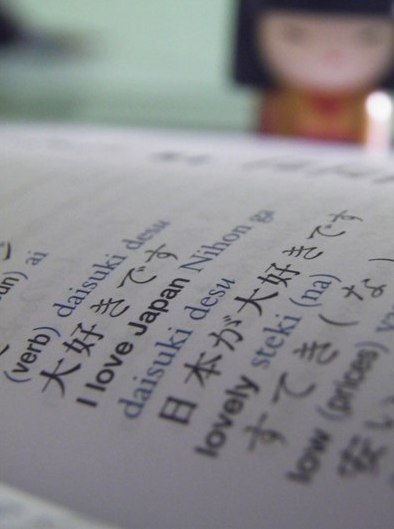 ai
(verb) daisuki desu
大好きです
I love Japan Nihon ga
daisuki desu
日本が大好きです
lovely steki (na)
すてき(な)
low (prices)
安い